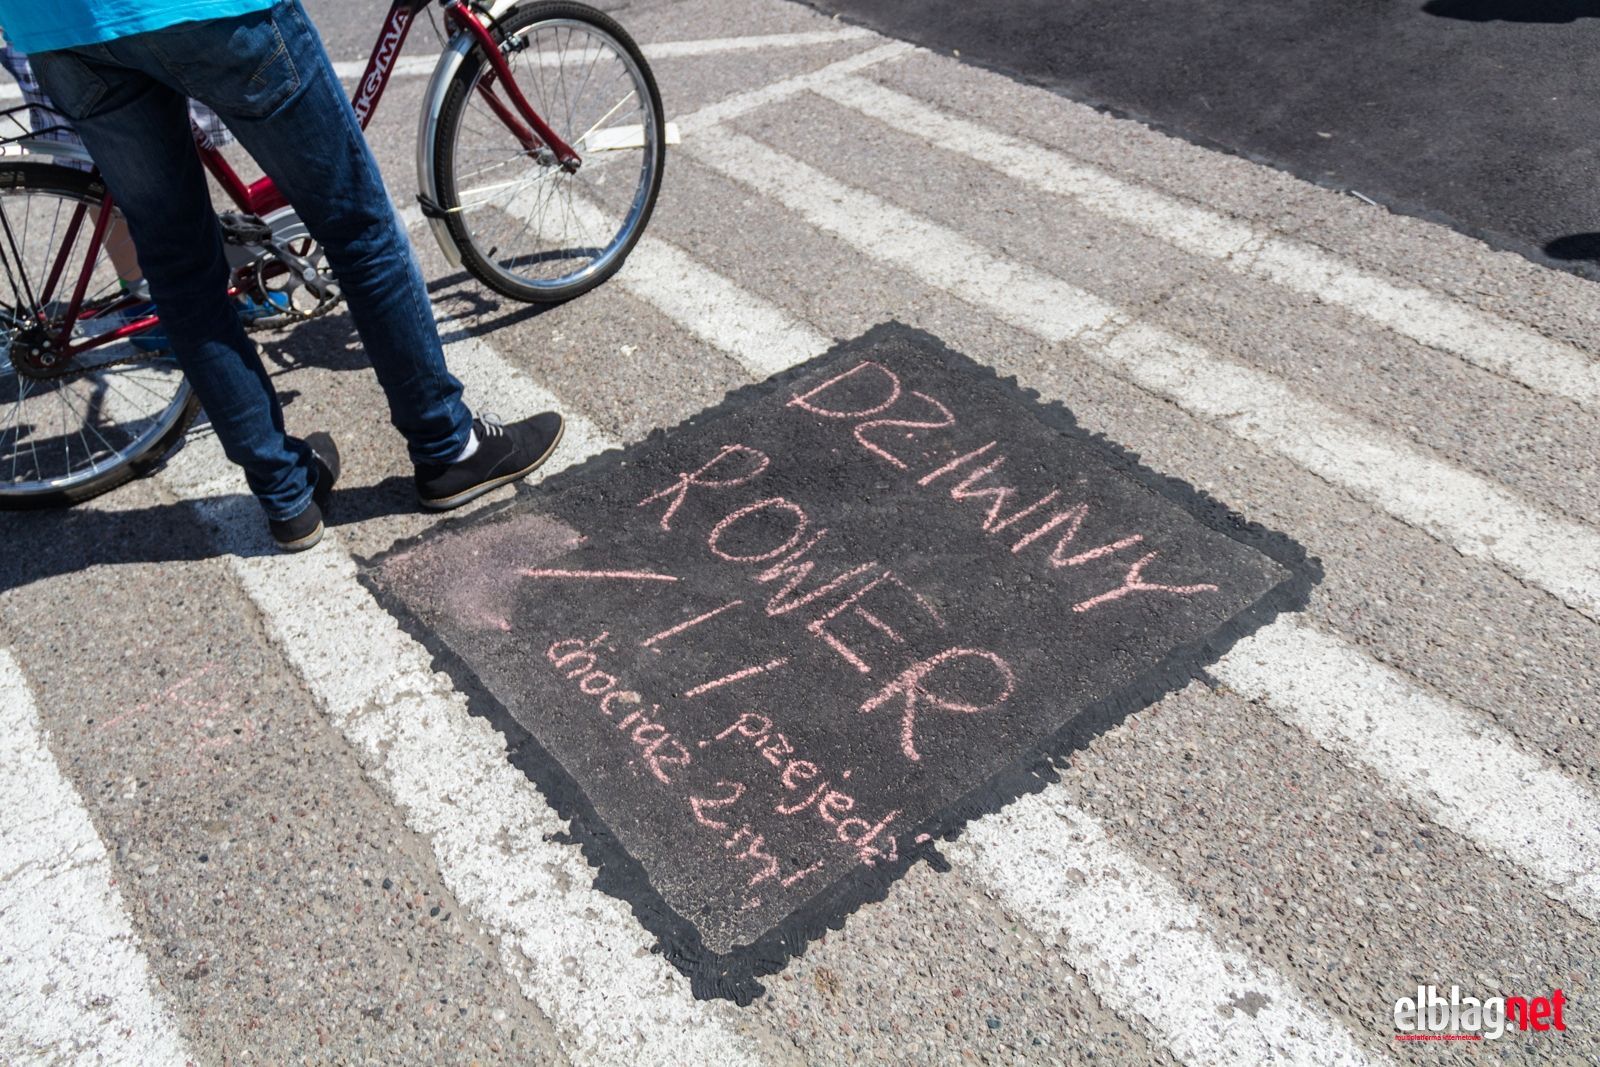 DZIWNY
ROWER
przejedź
chociaż 2m!
elblag.net
multiplatforma internetowa